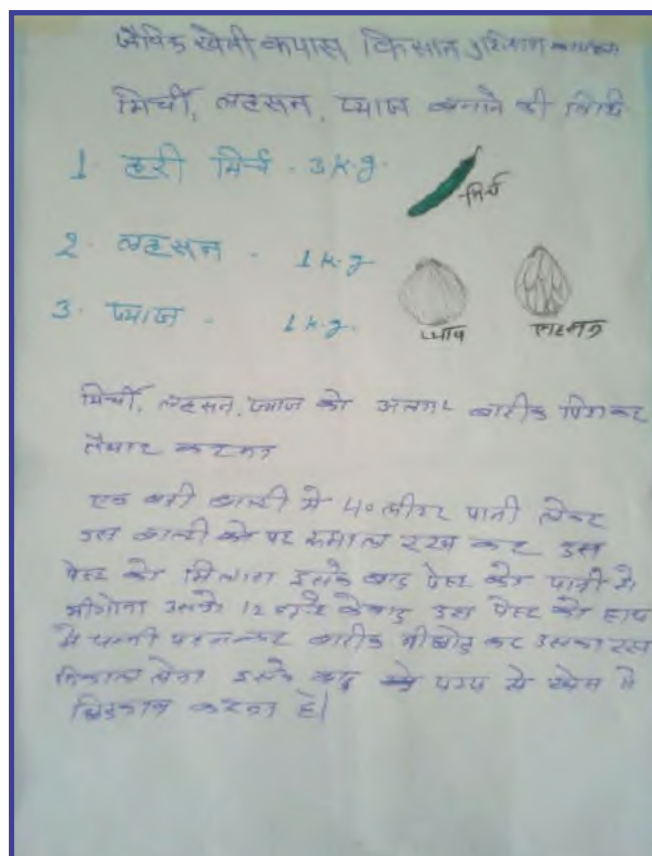 जैविक खेती कपास किसान
मिर्ची, लहसन, प्याज बनाने की विधि
1. हरी मिर्च - 3 k.g.
मिर्च
2. लहसन - 1 k.g
3. प्याज - 1 k.g.
प्याज
लहसन
मिर्ची, लहसन, प्याज को अलग2 बारीक पिसकर
तैयार करना
एक बड़ी बाल्टी में 40 लीटर पानी लेकर
उस बाल्टी को पर रूमाल रख कर उस
पेस्ट को मिलाना इसके बाद पेस्ट को पानी में
भीगोना उसके 12 घंटे के बाद उस पेस्ट को हाथ
में पन्नी पहनकर बारीक नीचोड़ कर उसका रस
निकाल लेना इसके बाद पम्प से खेत में
छिडकाव करना है।